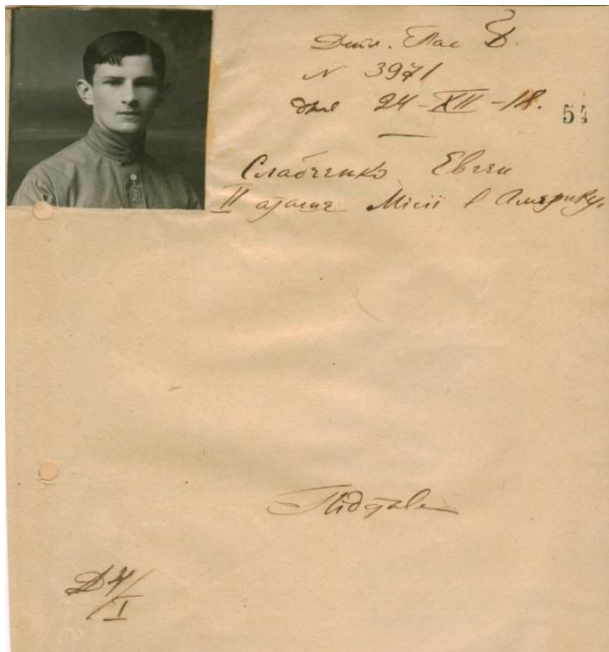 Дипл. Пас Д.
N 3971
дня 24-XII-18.
54
Слабченко Евген
II аташе Місії в Америку.
Підпис